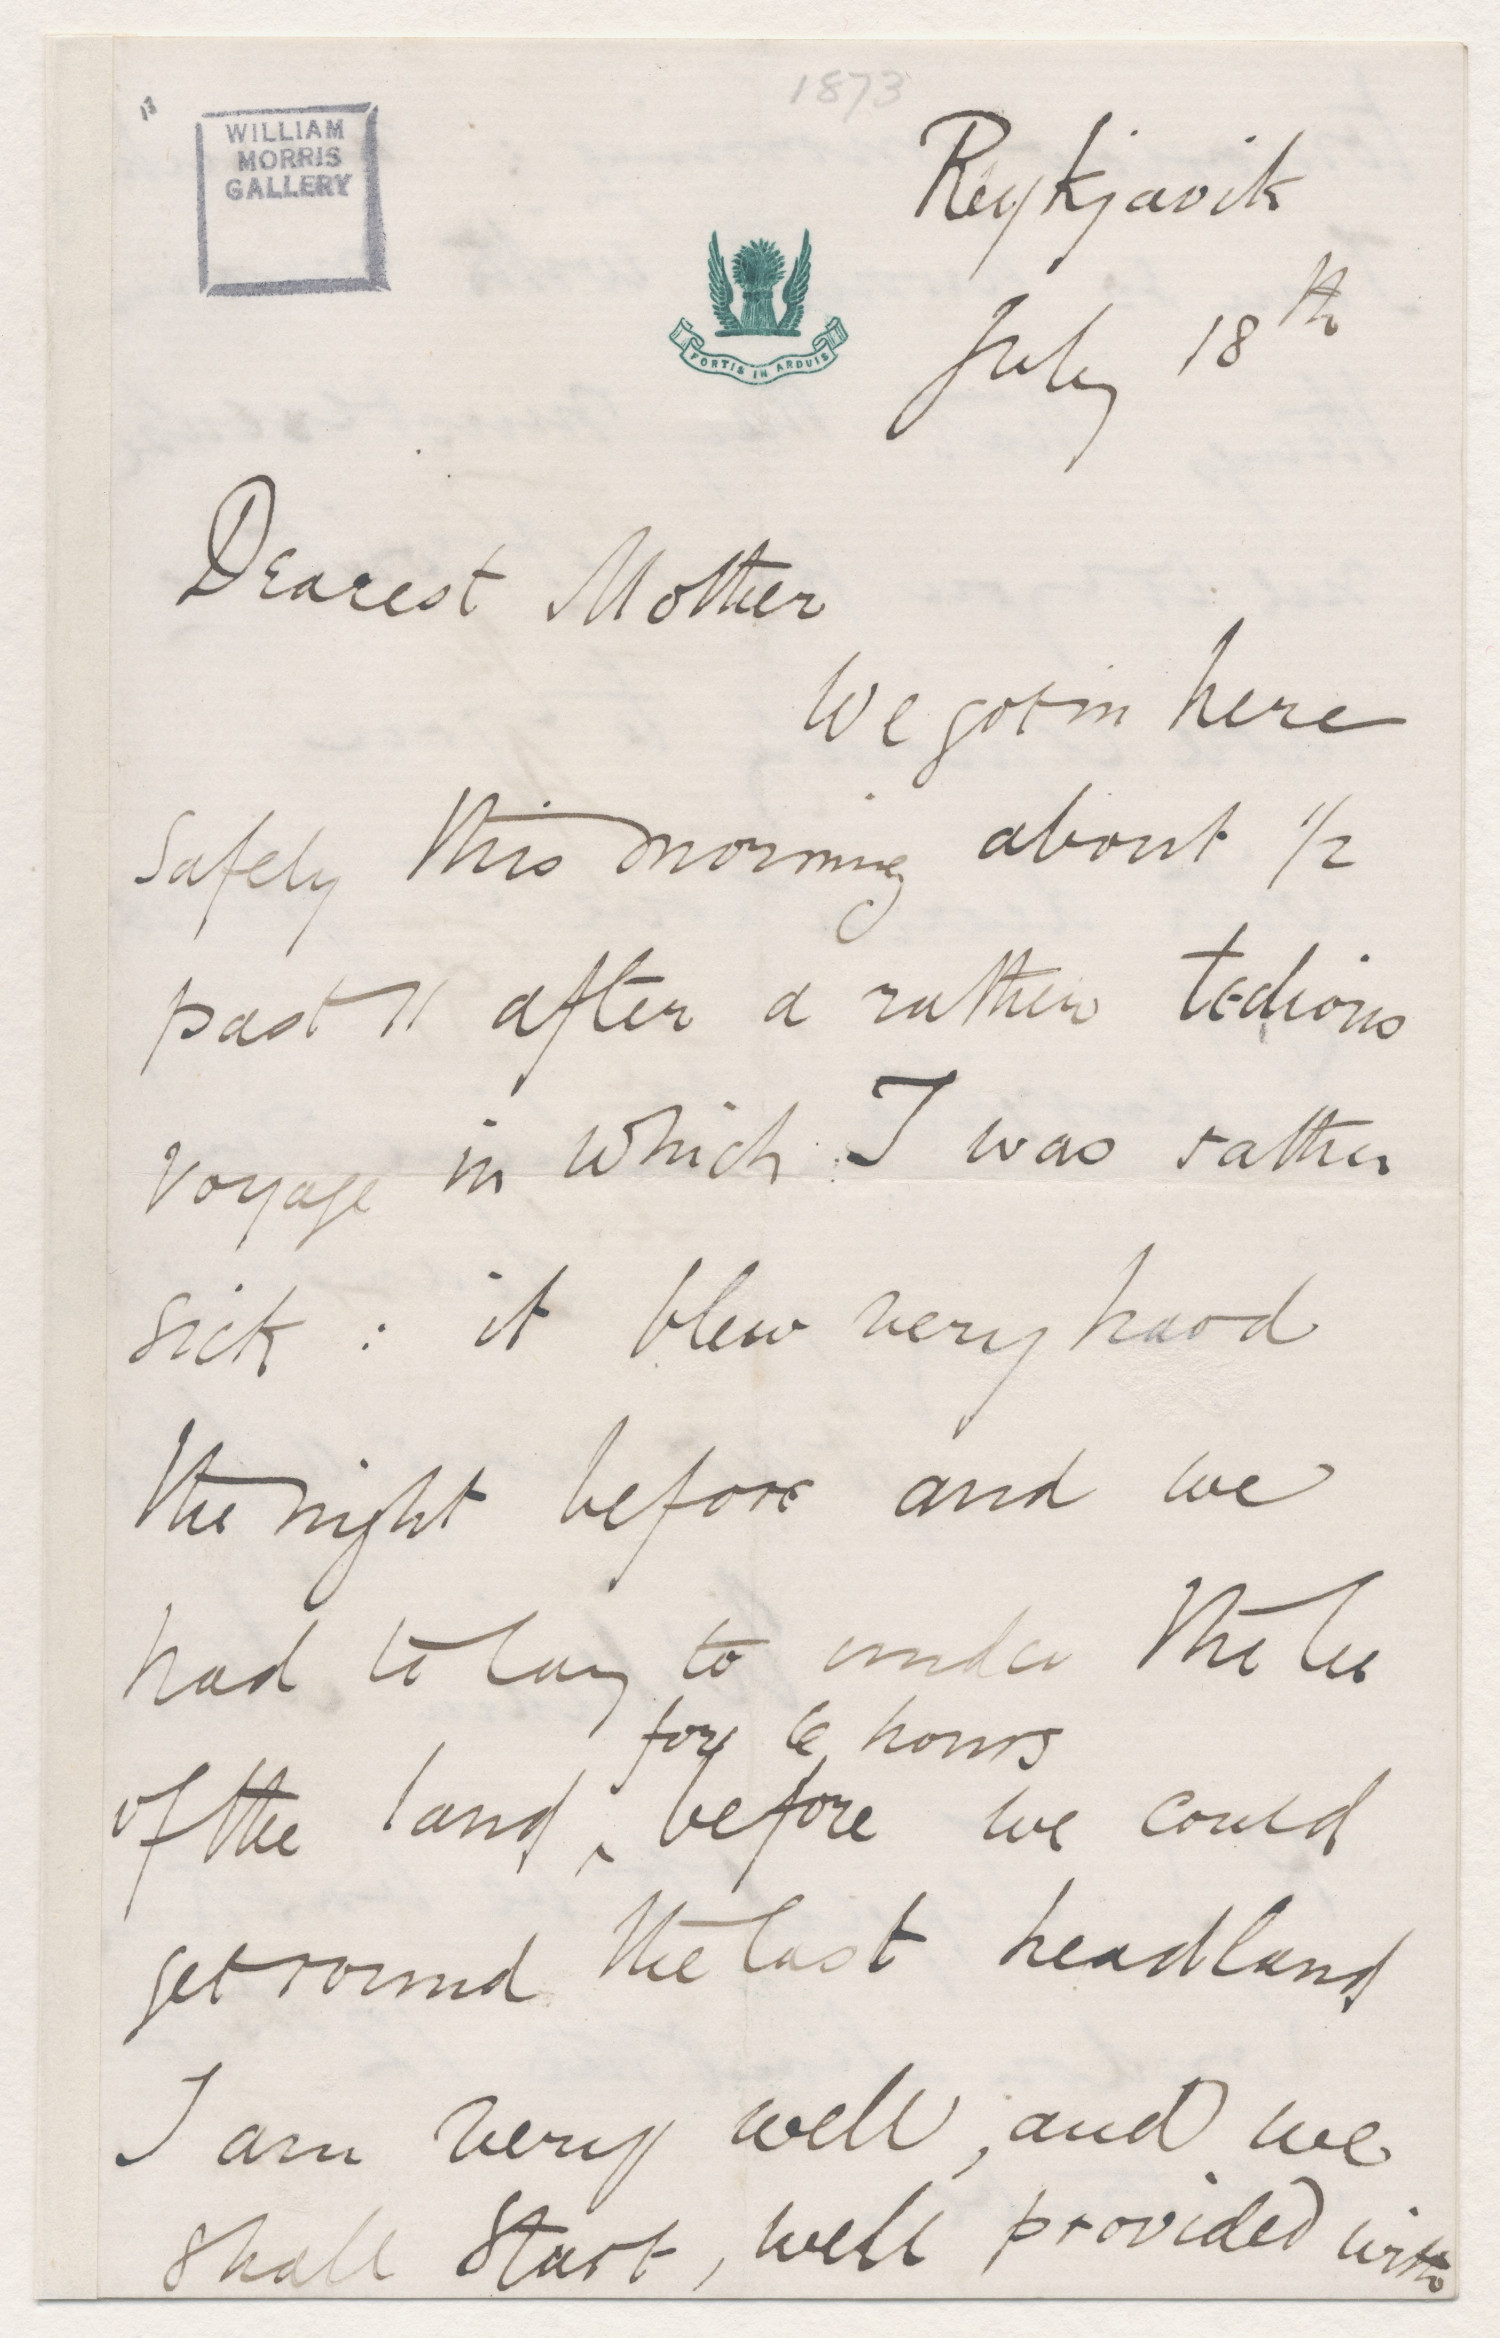 1873
WILLIAM
MORRIS
GALLERY
Reykjavik
July 18th
FORTIS IN ARDUIS
Dearest Mother
We got in here
safely this morning about 1/2
past 11 after a rather tedious
voyage in which I was rather
sick : it blew very hard
the night before and we
had to lay to under the lee
for 6 hours
of the land, ‸ before we could
get round the last headland
I am very well, and we
shall start, well provided with